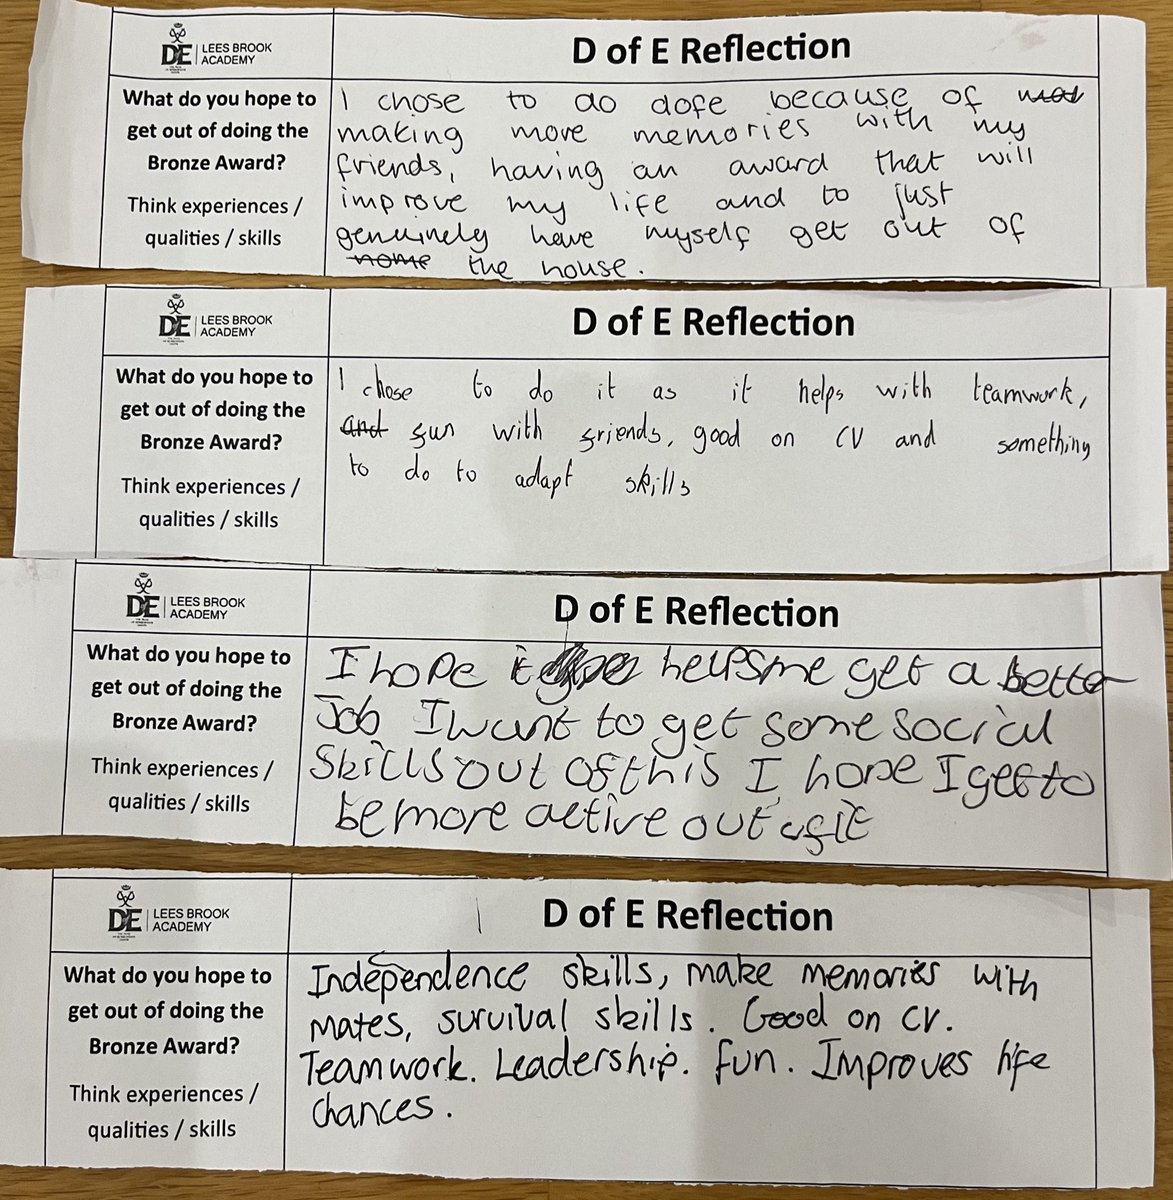 DE LEES BROOK
ACADEMY
D of E Reflection
What do you hope to
get out of doing the
Bronze Award?
Think experiences /
qualities / skills
I chose to do dofe because of
making more memories with my
friends, having an award that will
improve my life and to just
genuinely have myself get out of
home the house.
DE LEES BROOK
ACADEMY
D of E Reflection
What do you hope to
get out of doing the
Bronze Award?
Think experiences /
qualities / skills
I chose to do it as it helps with teamwork,
and fun with friends, good on CV and something
to do to adapt skills
DE LEES BROOK
ACADEMY
D of E Reflection
What do you hope to
get out of doing the
Bronze Award?
Think experiences /
qualities / skills
I hope it helps me get a better
Job I want to get some social
skills out of this I hope I get to
be more active out of it
DE LEES BROOK
ACADEMY
D of E Reflection
What do you hope to
get out of doing the
Bronze Award?
Think experiences /
qualities / skills
Independence skills, make memories with
mates, survival skills. Good on CV.
Teamwork. Leadership. fun. Improves life
chances.